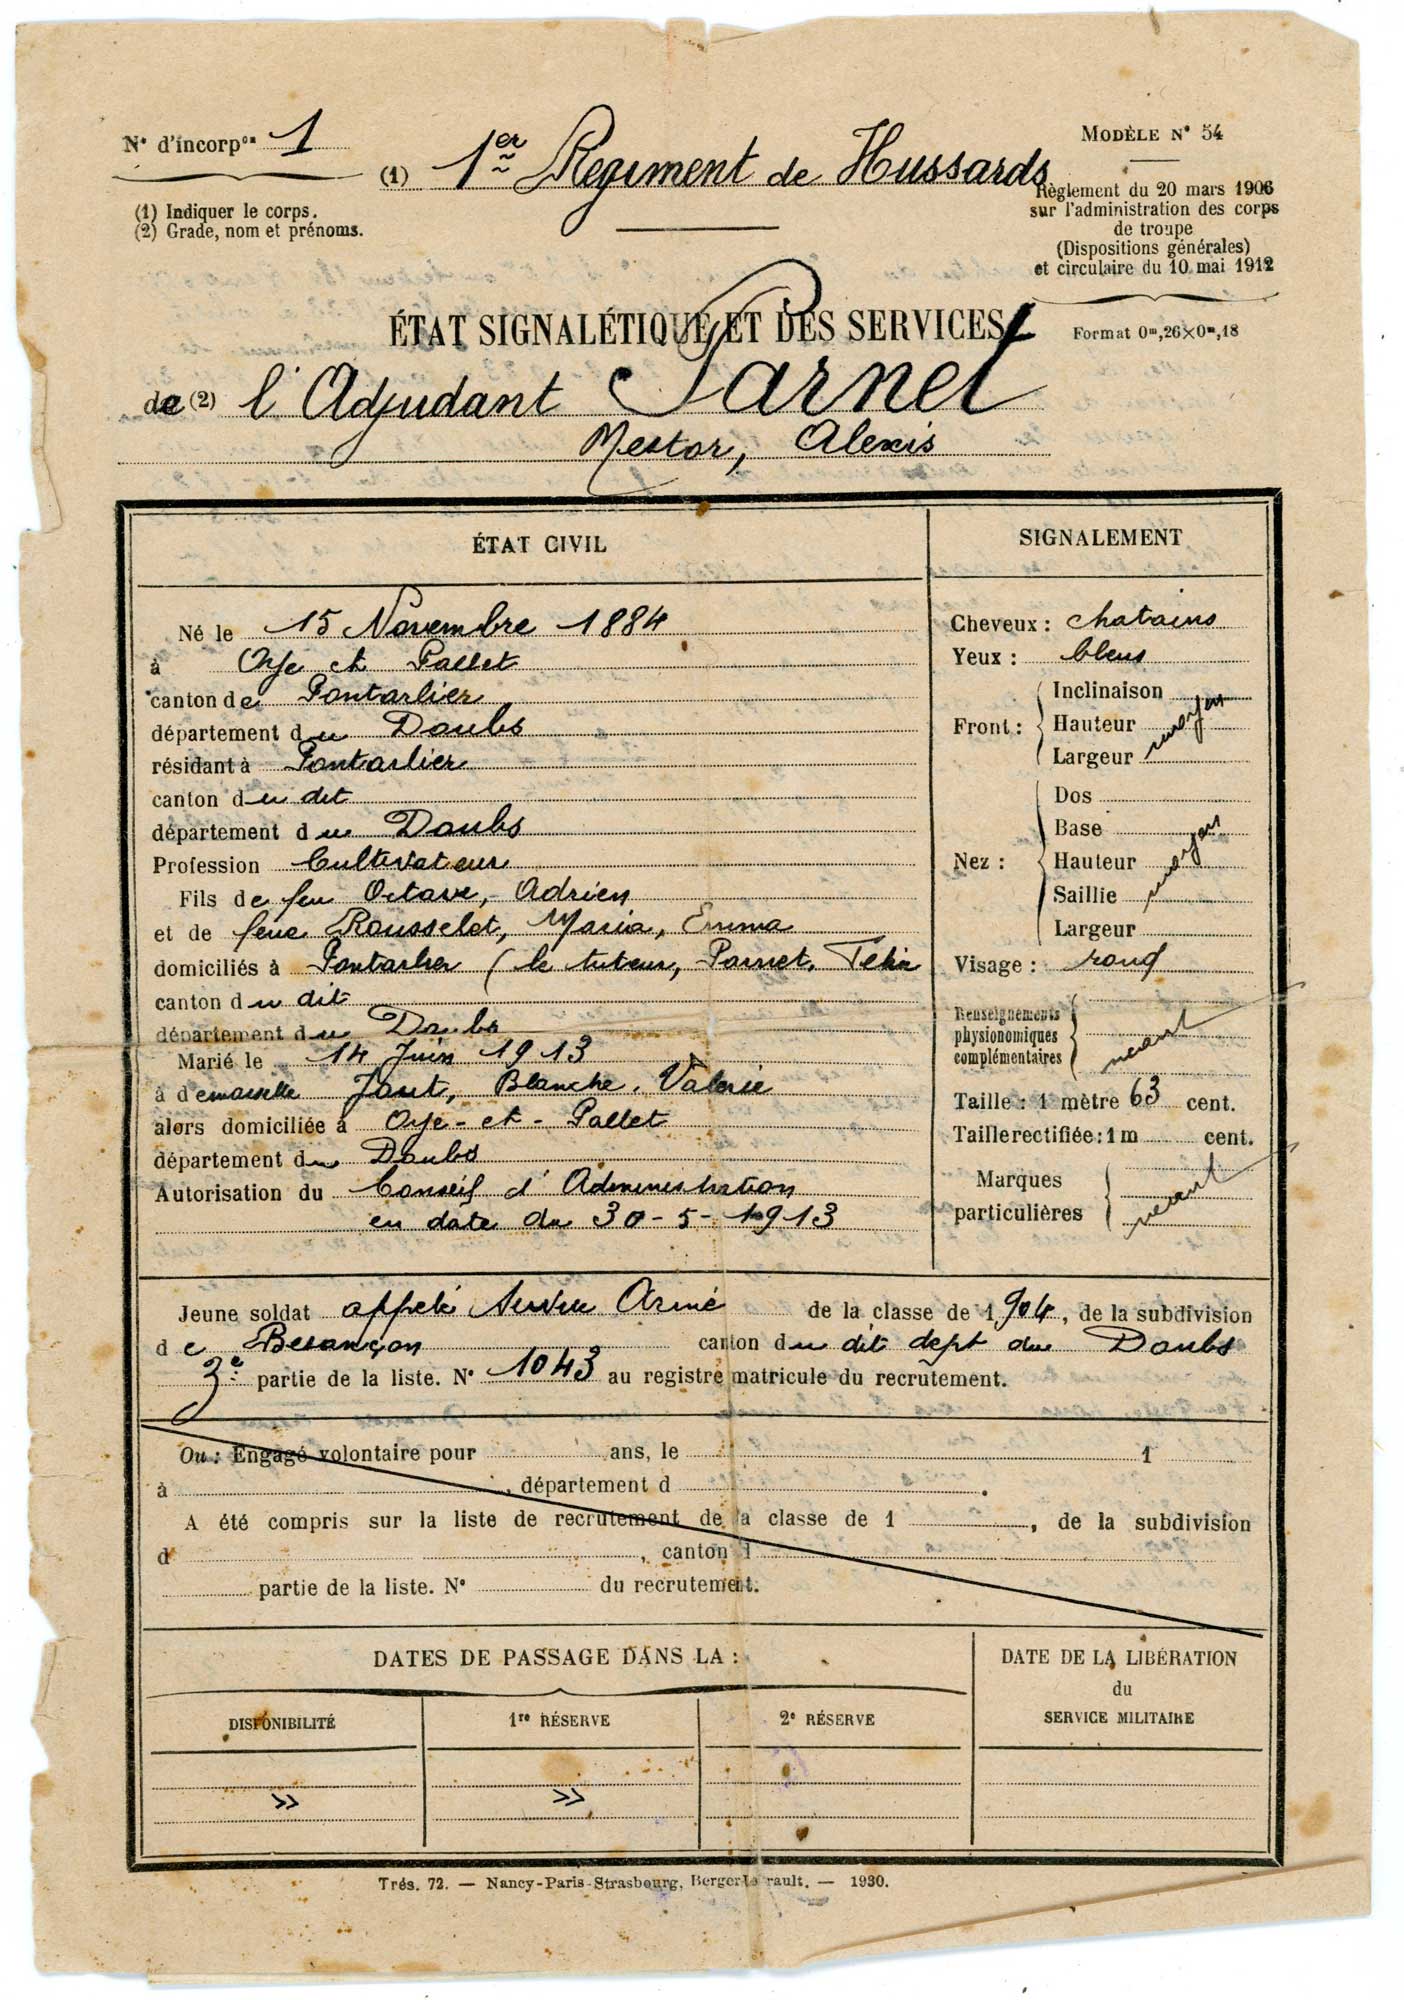 N° d'incorpon 1
(1) 1er Regiment de Hussards
MODÈLE N° 54
(1) Indiquer le corps.
(2) Grade, nom et prénoms.
Règlement du 20 mars 1906
sur l'administration des corps
de troupe
(Dispositions générales)
et circulaire du 10 mai 1912
Format 0m,26×0m,18
ÉTAT SIGNALÉTIQUE ET DES SERVICES
de (2) l'Adjudant Parnet
Nestor, Alexis
ÉTAT CIVIL
Né le 15 Novembre 1884
à Oye et Pallet
canton de Pontarlier
département du Doubs
résidant à Pontarlier
canton du dit
département du Doubs
Profession Cultivateur
Fils de feu Octave, Adrien
et de feue Rousselot, Maria, Emma
domiciliés à Pontarlier (le tuteur, Parnet,
canton du dit
département du Doubs
Marié le 14 Juin 1913
à demoiselle Jaut, Blanche, Valerie
alors domiciliée à Oye-et-Pallet
département du Doubs
Autorisation du Conseil d'Administration
en date du 30-5-1913
SIGNALEMENT
Cheveux : chatains
Yeux : bleus
Front : Inclinaison
Hauteur moyen
Largeur
Nez : Dos
Base
Hauteur moyen
Saillie
Largeur
Visage : rond
Renseignements
physionomiques
complémentaires néant
Taille : 1 mètre 63 cent.
Taille rectifiée : 1 m cent.
Marques
particulières néant
Jeune soldat appelé Service Armé de la classe de 1904, de la subdivision
de Besançon canton du dit dept du Doubs
3e partie de la liste. N° 1043 au registre matricule du recrutement.
Ou : Engagé volontaire pour ans, le 1
à , département d .
A été compris sur la liste de recrutement de la classe de 1 , de la subdivision
d , canton d
partie de la liste. N° du recrutement.
DATES DE PASSAGE DANS LA :
DATE DE LA LIBÉRATION
du
SERVICE MILITAIRE
DISPONIBILITÉ
1re RÉSERVE
2e RÉSERVE
» »
Trés. 72. — Nancy-Paris-Strasbourg, Berger-Levrault. — 1930.